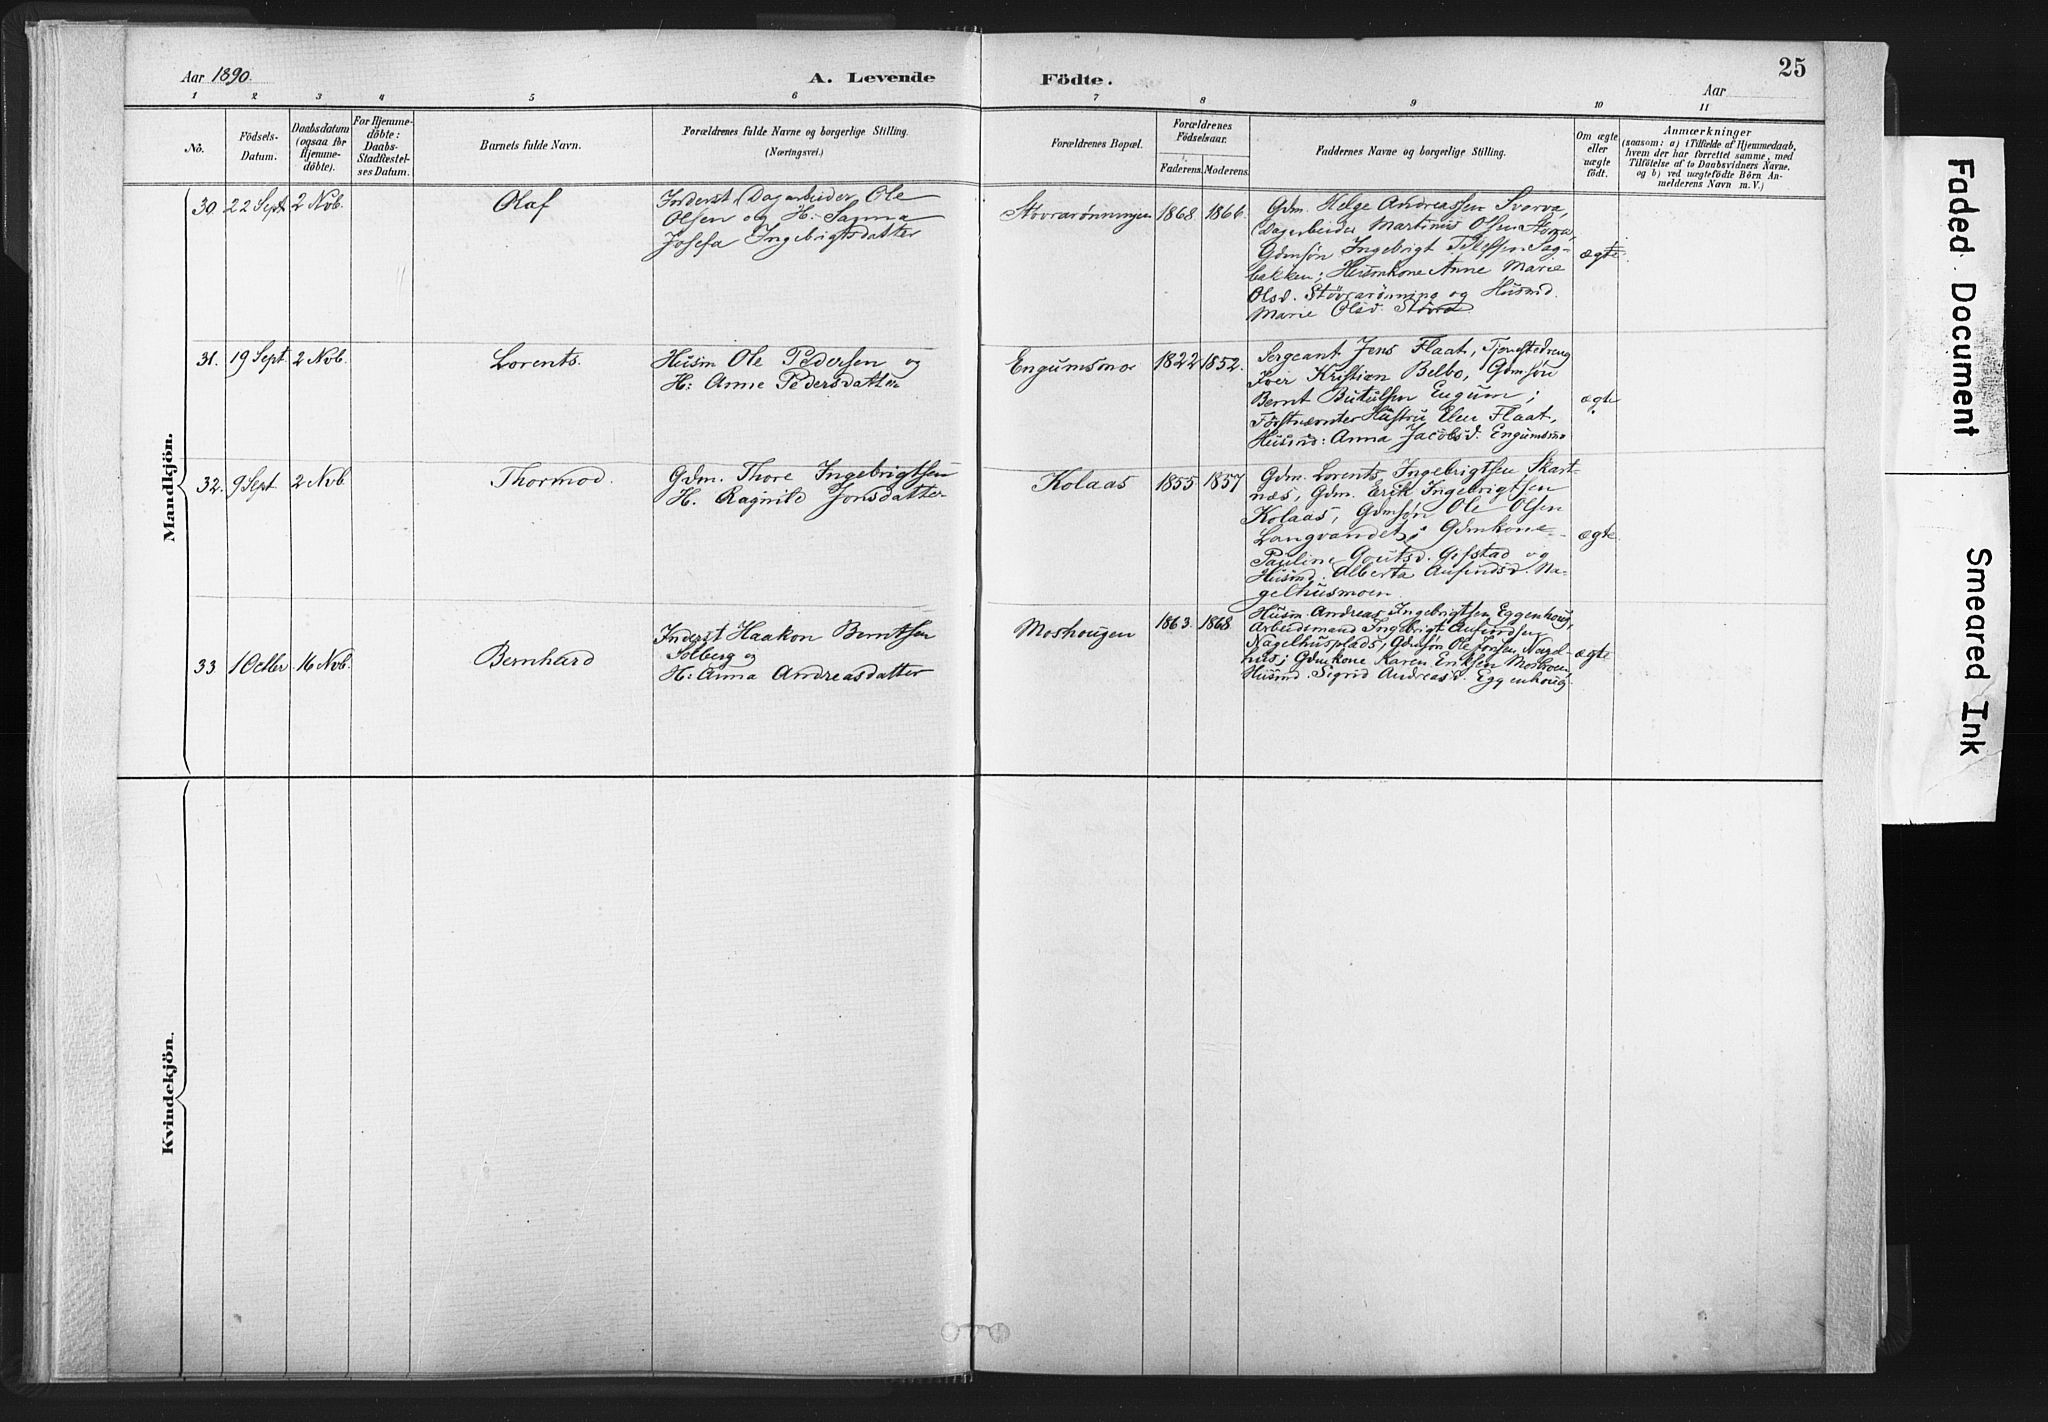 Aar 1890.
A. Levende Födte.
25
Aar
1 2 3 4 5 6 7 8 9 10 11
No.
Födsels-
Datum.
Daabsdatum
(ogsaa for
Hjemme-
döbte).
For Hjemme-
döbte:
Daabs-
Stadfestel-
ses Datum.
Barnets fulde Navn.
Forældrenes fulde Navne og borgerlige Stilling.
(Næringsvei.)
Forældrenes Bopæl.
Forældrenes
Födselsaar.
Faderens. Moderens.
Faddernes Navne og borgerlige Stilling.
Om ægte
eller
uægte
födt.
Anmærkninger
(saasom: a) i Tilfælde af Hjemmedaab,
hvem der har forrettet samme, med
Tilföielse af to Daabsvidners Navne.
og b) ved uægtefödte Börn An-
melderens Navn m. V.)
Mandkjön.
30 22 Sept 2 Nov. Olaf
Inderst Dagarbeider Ole
Olsen og H: Sanna
Josefa Ingebrigtsdatter
Stovrarønningen 1868 1866.
Gdm. Helge Andreassen Svarva,
Dagarbeider Martinus Olsen Støvra,
Gdmsøn Ingebrigt Tlefsen Sag-
bakken; Husmkone Anne Marie
Olsd. Støvrarønning og Husmd.
Marie Olsd. Støvra
ægte.
31. 19 Sept. 2 Nov. Lorents.
Husm Ole Pedersen og
H: Anne Pedersdatter
Engumsmo 1822 1852.
Sergeant Jens Flaat, Tjenestedreng
Iver Kristian Belbo, Gdmsøn
Bernt Butulsen Engum;
Førstnævntes Hustru Elen Flaat,
Husmd: Anna Jacobsd. Engumsmo
ægte
32. 9 Sept 2 Nov Thormod.
Gdm. Thore Ingebrigtsen
H. Ragnild Jonsdatter
Kolaas 1855 1857
Gdm. Lorents Ingebrigtsen Skart-
næs, Gdm. Erik Ingebrigtsen
Kolaas, Gdmsøn Ole Olsen
Langvandet; Gdmkone
Pauline Goutsd. Gifstad og
Husmd. Alberta Anfindsd. Na-
gelhusmoen.
ægte
33 1 Octbr 16 Nov. Bernhard
Inderst Haakon Berntsen
Solberg og
H: Anna Andreasdatter
Moshougen 1863. 1868.
Husm. Andreas Ingebrigtsen Eggenhoug,
Arbeidsmand Ingebrigt Anfindsen
Nagelhusplads, Gdmsøn Ole Jonsen Nagel-
hus; Gdmkone Karen Eriksen Moshoen,
Husmd. Sigrid Andreasd. Eggenhoug
ægte
Kvindekjön.
Faded Document
Smeared Ink